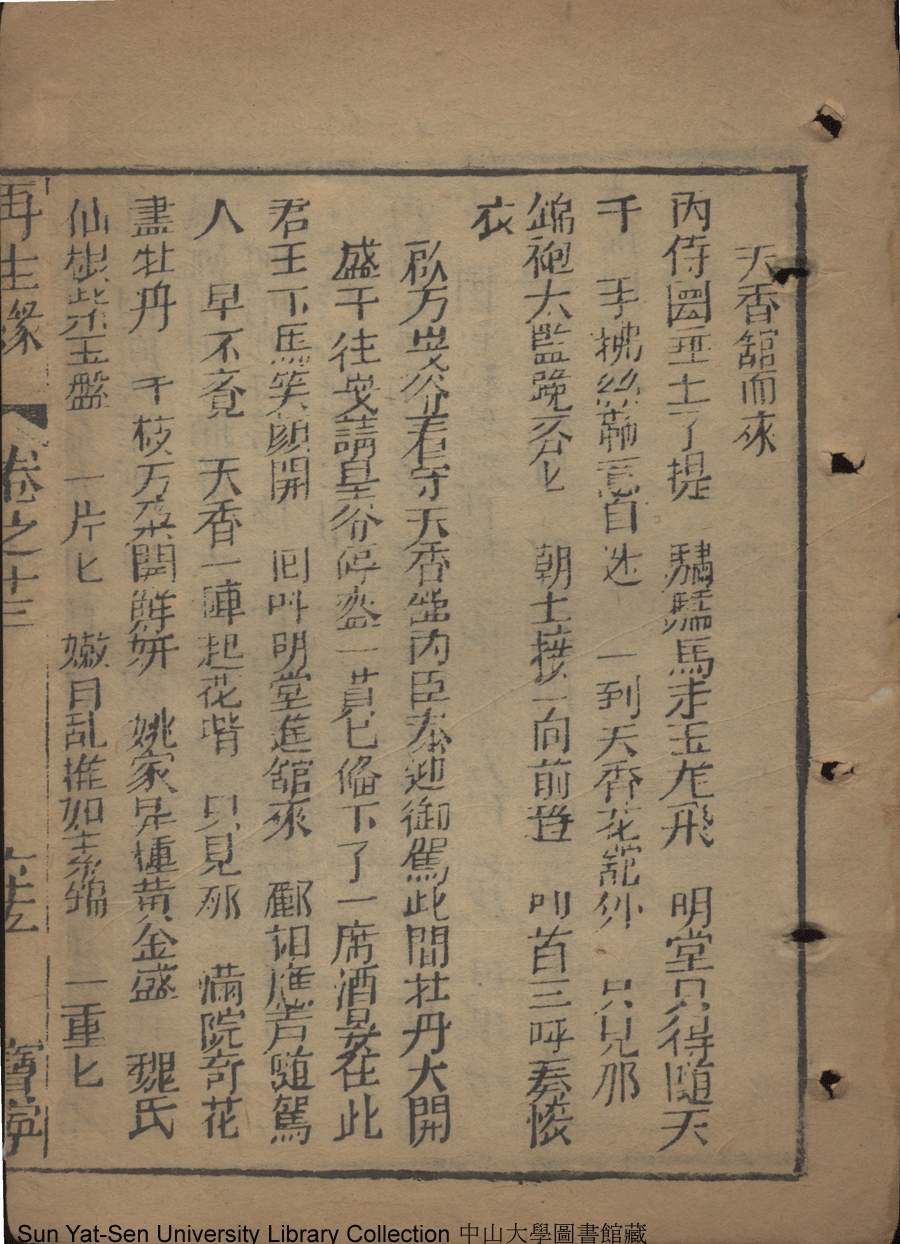 天香舘而來
內侍圏至土了提　驌驦馬走玉龙飛　明堂只得随天
千　手拂丝韁意自迷　一到天香花舘外　只見那
錦袍太監跪爷匕　朝士接一向前登　叩首三呼奏慢
衣
啟万歲爷看守天香舘內臣奉迎御駕此間牡丹大開
盛于往歲請皇爷停盃一貰匕俻下了一席酒晏在此
君王下馬笑顔開　囬叫明堂進舘來　酈相應声随駕
人　早不覔　天香一陣起花堦　只見那　滿院奇花
盡牡丹　千枝万朶開鮮妍　姚家异種黄金盛　魏氏
仙根紫玉盤　一片匕　嫩目乱推如素錦　一重匕
再生緣　卷之十三　寳寧
Sun Yat-Sen University Library Collection 中山大學圖書館藏